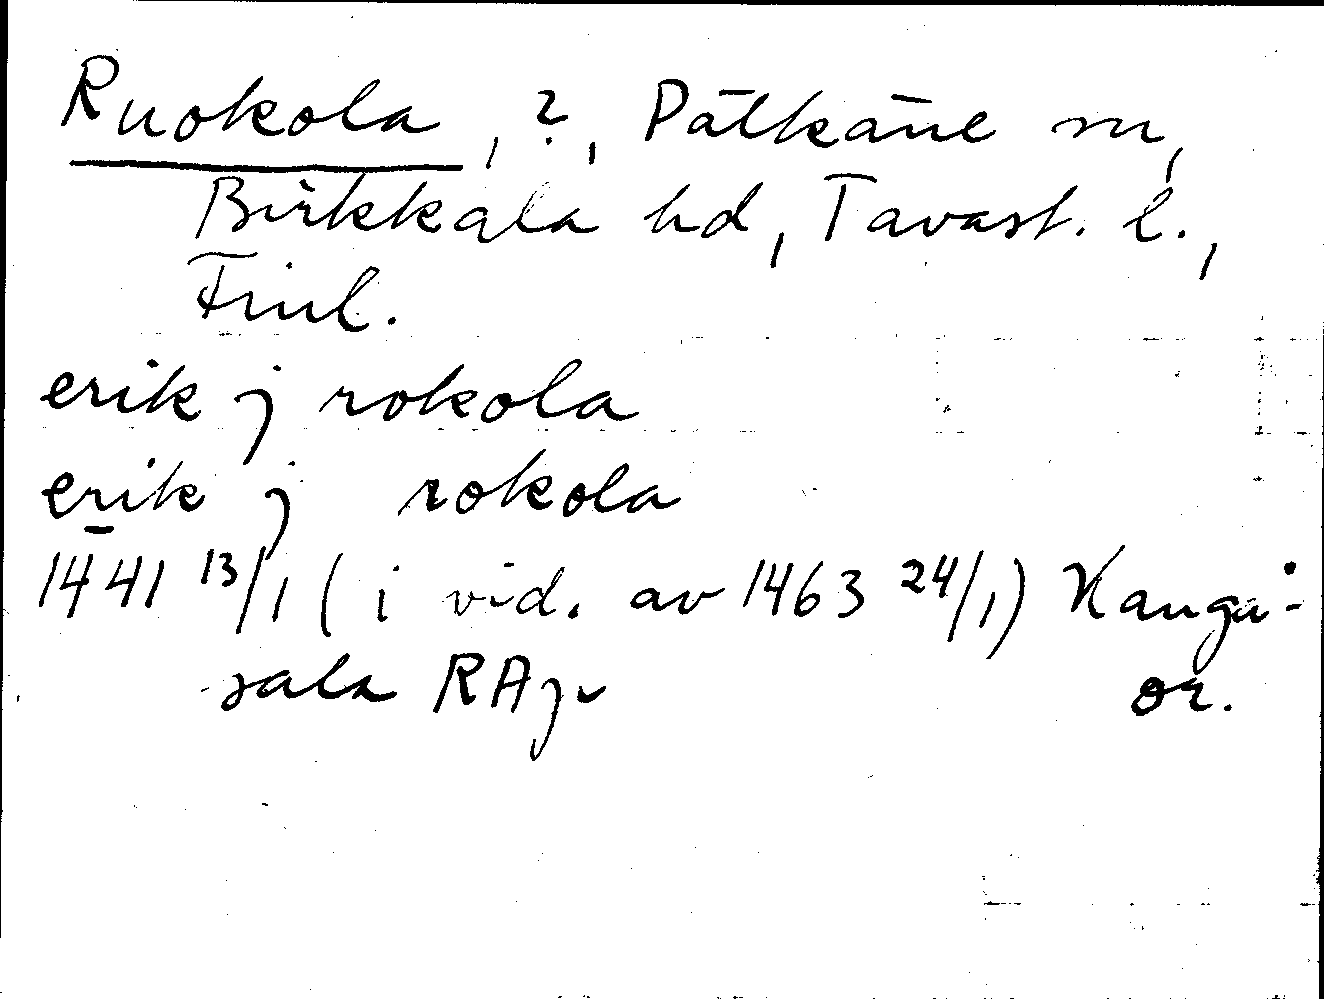 Ruokola, ?, Pälkäne sn,
Birkkala hd, Tavast. l.,
Finl.
erik j rokola
erik j rokola
1441 13/1 (i vid. av 1463 24/1) Kanga-
sala RAp or.